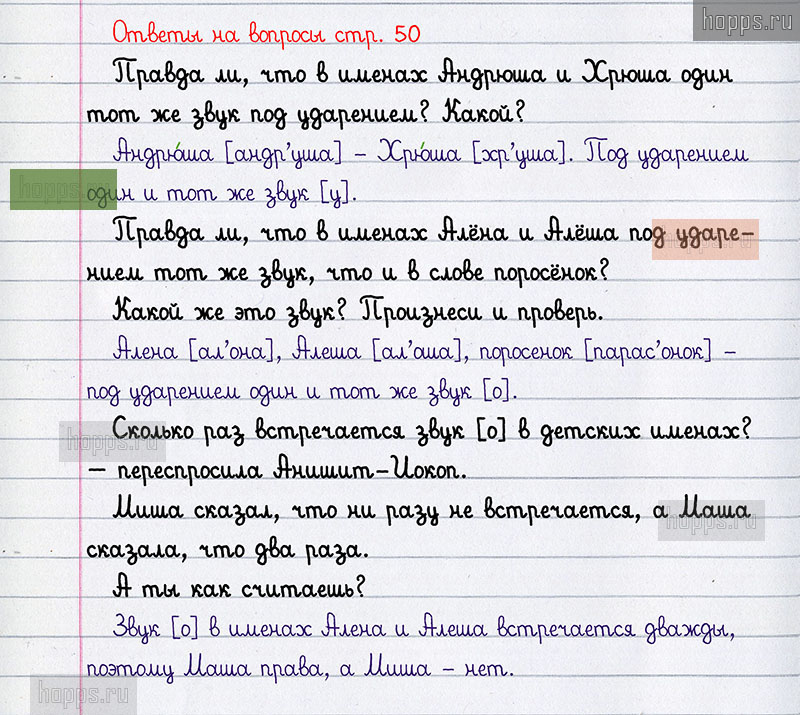 hopps.ru
Ответы на вопросы стр. 50
Правда ли, что в именах Андрюша и Хрюша один
тот же звук под ударением? Какой?
Андрю́ша [андр’уша] – Хрю́ша [хр’уша]. Под ударением
hopps один и тот же звук [у].
Правда ли, что в именах Алёна и Алёша под ударе–
нием тот же звук, что и в слове поросёнок?
Какой же это звук? Произнеси и проверь.
Алена [ал’она], Алеша [ал’оша], поросенок [парас’онок] –
под ударением один и тот же звук [о].
Сколько раз встречается звук [о] в детских именах?
hopps.ru
– переспросила Анишит–Йокоп.
Миша сказал, что ни разу не встречается, а Маша
hopps.ru
сказала, что два раза.
А ты как считаешь?
Звук [о] в именах Алена и Алеша встречается дважды,
поэтому Маша права, а Миша – нет.
hopps.ru